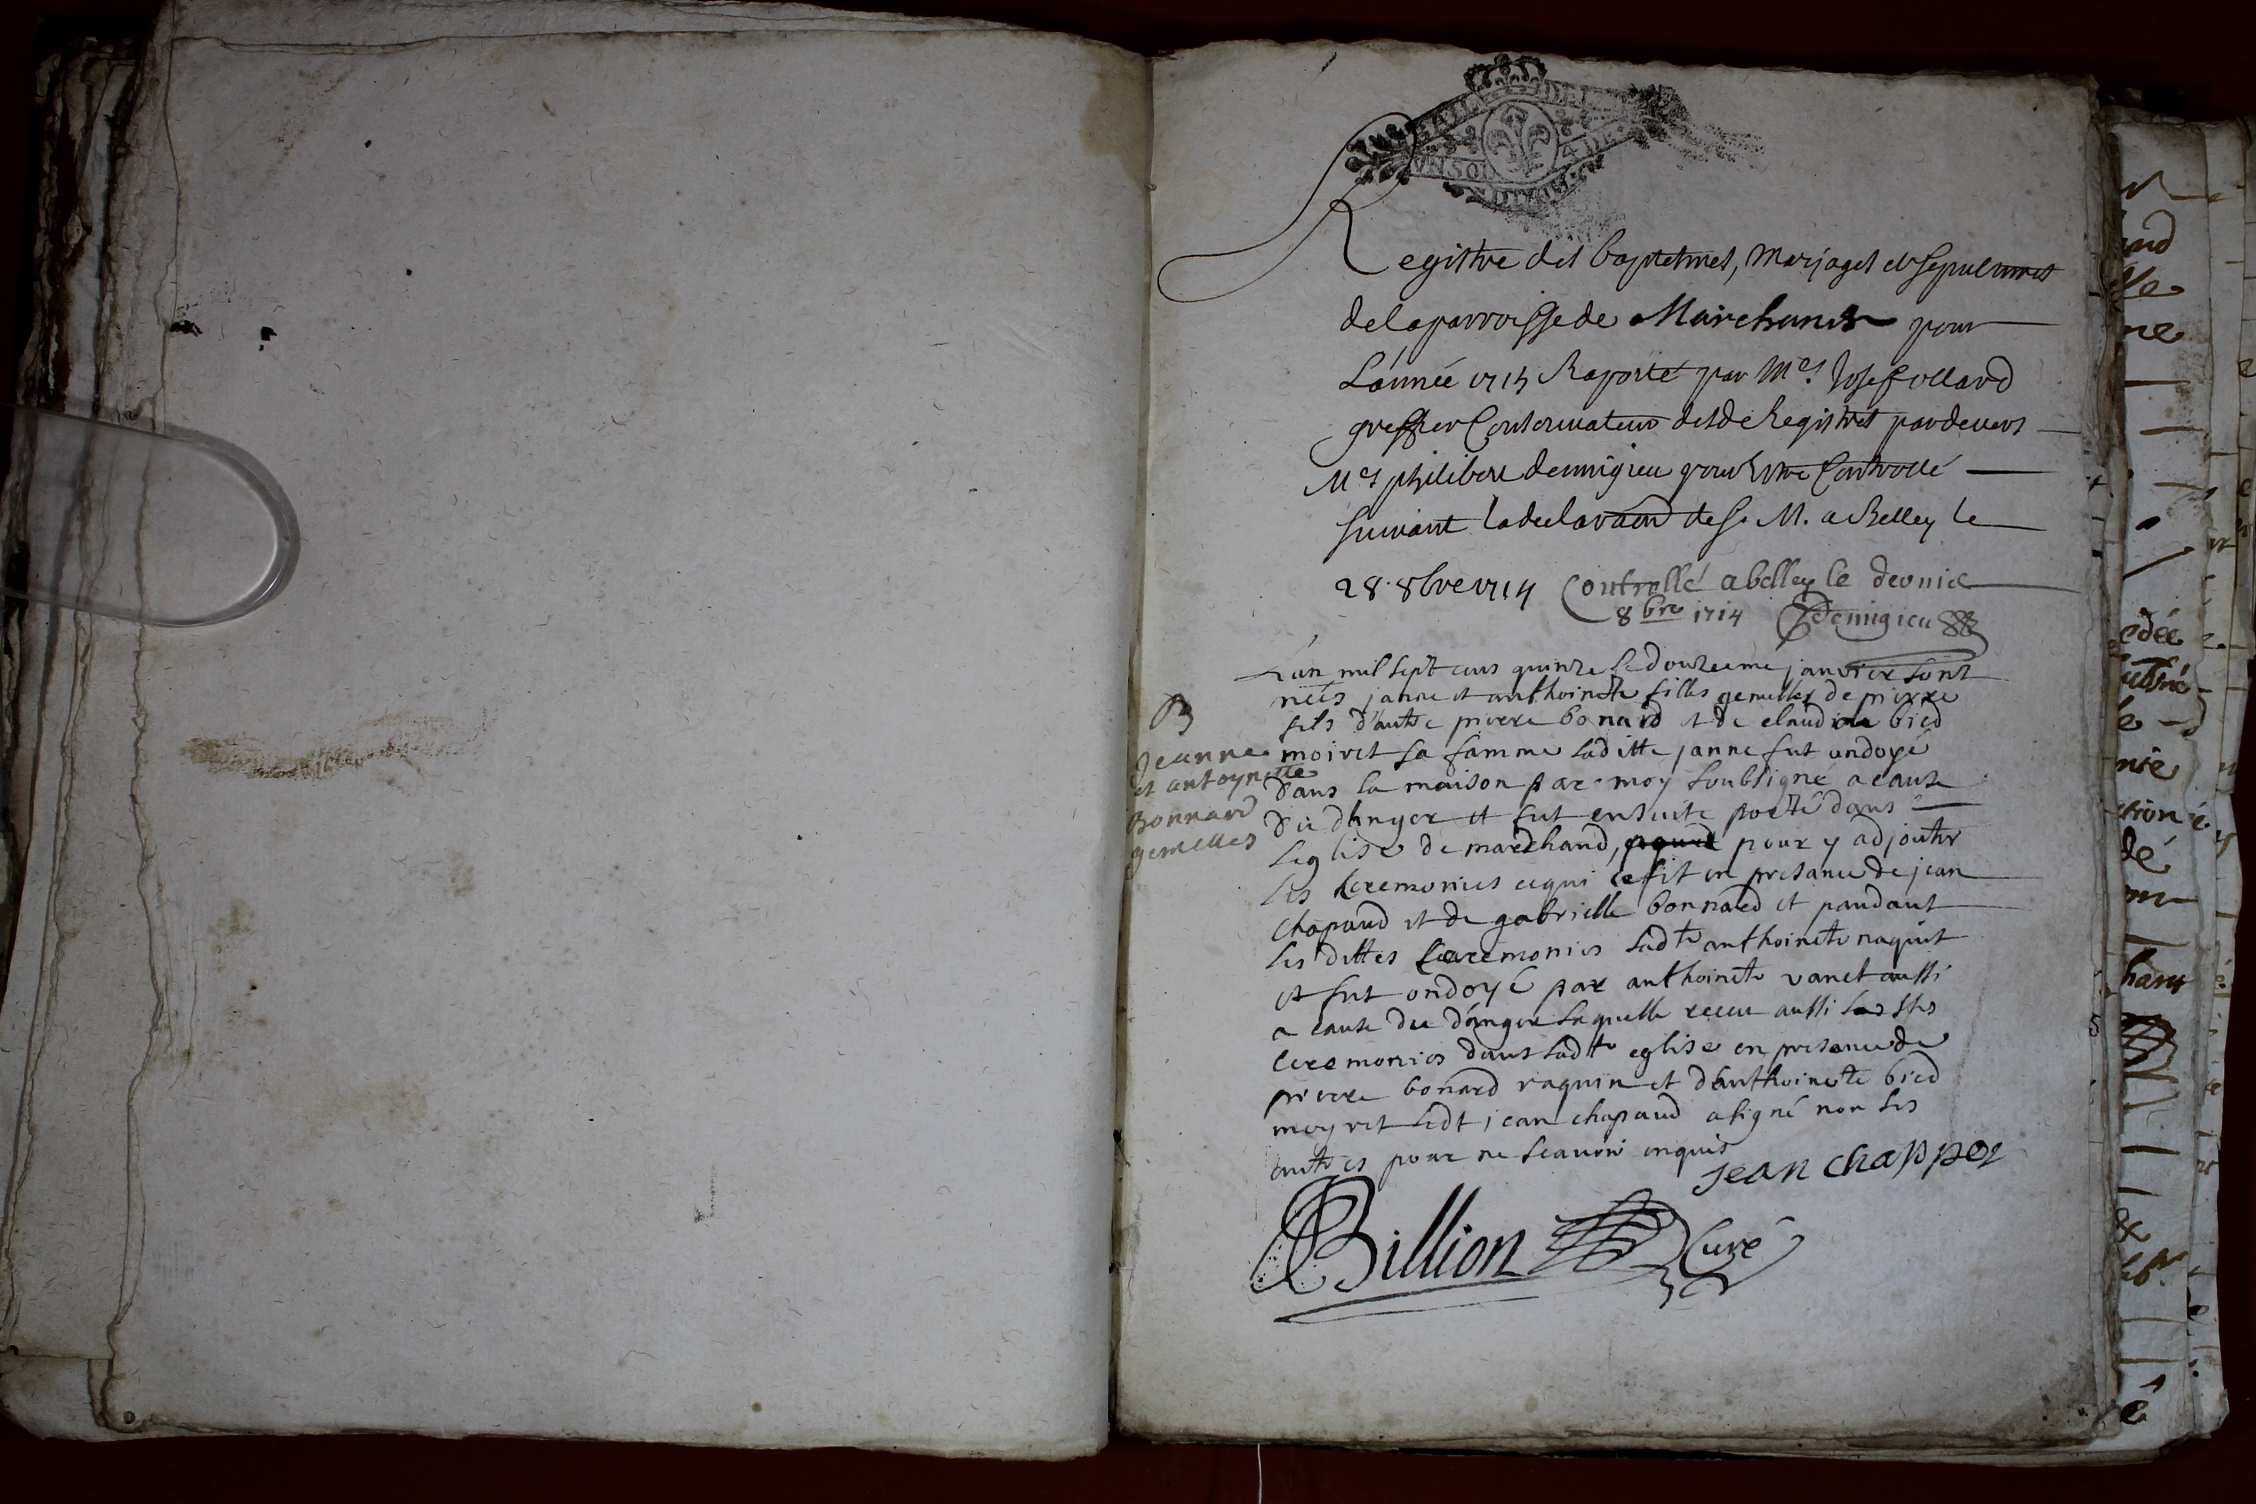 VN SOL 4 DE
Registre des baptesmes, Marjages et sepultures
de la parroisse de Marchand pour
L'année 1714 Raporté par Me. Josef ollard
greffier Conservateur desd. Registres pardevers
Me philibert demigieu pour Estre Controllé
suivant la declaraon de sa M. a Belley le
28. 8bre 1714 Controllé a belley le
8bre 1714 Demigieu
L'an mil sept cens quinze le douzieme janvier sont
neés janne et anthoinette filles gemelles de pierre
fils d'autre pierre bonard et de claudine bied
moiret sa famme laditte janne fut ondoyé
B
Jeanne
et antoynette
Bonnard
gemelles
dans la maison par moy soubsigné a cause
du danger et fut ensuite porté dans
leglise de marchand, pour y adjouter
les ceremonies ce qui se fit en presance de jean
chapaud et de gabrielle bonnard et pandant
les dittes ceremonies ladte anthoinette naquit
et fut ondoyé par anthoinette vanet aussi
a cause du danger laquelle receu aussi les stes
ceremonies dans ladte eglise en presence de
pierre bonard raquin et d'anthoinette bied
moyret ledt jean chapaud a signé non les
autres pour ne scavoir enquis
jean chappoz
Billion Curé